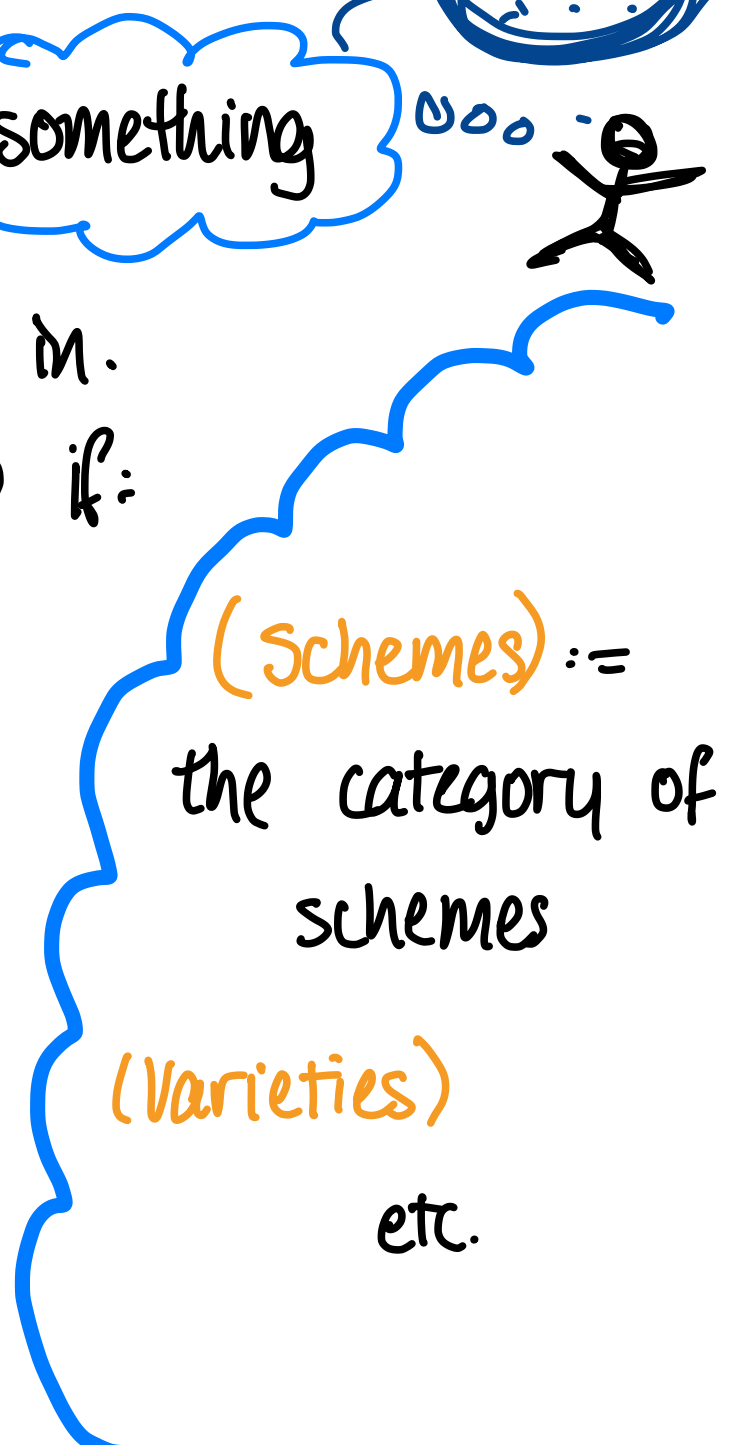 something
in.
if:
(Schemes) :=
the category of
schemes
(Varieties)
etc.